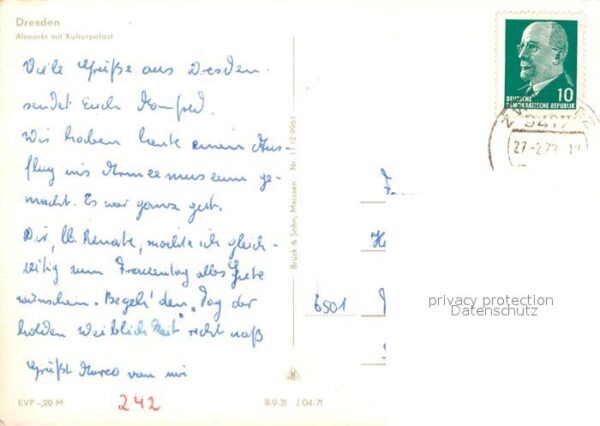 Dresden
Altmarkt mit Kulturpalast
Viele Grüße aus Dresden
sendet Euch Manfred.
Wir haben heute einen Aus-
flug ins Armeemuseum ge-
macht. Es war ganz gut.
Dir, lb. Renate, möchte ich gleich-
zeitig zum Frauentag alles Gute
wünschen. Begeh' den "Tag der
holden Weiblichkeit" recht naß
Grüßt Marco von mir
EVP -,20 M
242
B-9-31 J 04-71
Brück & Sohn, Meissen
6501
10
DEUTSCHE
DEMOKRATISCHE REPUBLIK
27.-2.72
privacy protection
Datenschutz